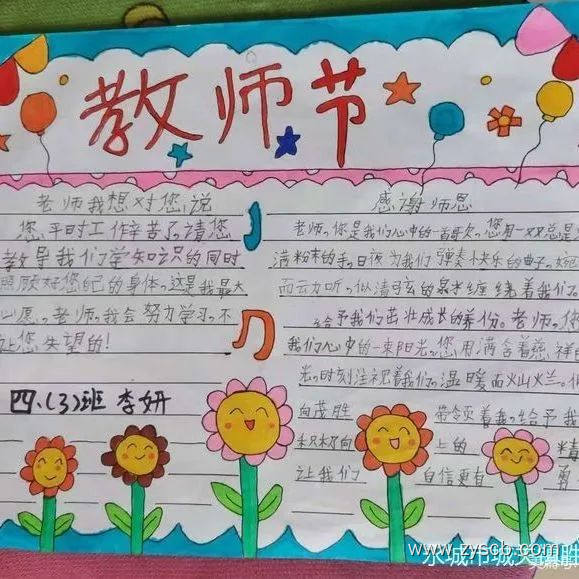 教师节
老师我想对您说
您平时工作辛苦了请您
教导我们学知识的同时
照顾好您自己的身体。这是我最大
心愿。老师。我会努力学习。不
让您失望的!
四、(3)班 李妍
感谢师恩
老师。你是我们心中的一首歌。您用一双总是
满粉末的手。日夜为我们弹奏快乐的曲子。
而动听。似清弦的 缠绕着我们
给予我们茁壮成长的养份。老师。
我们心中的一束阳光。您用满含着慈祥
光。时刻注视着我们。温暖而灿烂。
向茂胜 带领着我。给予我
积极向上的
让我们 自信更有勇
www.zyscb.com
水城市城关镇